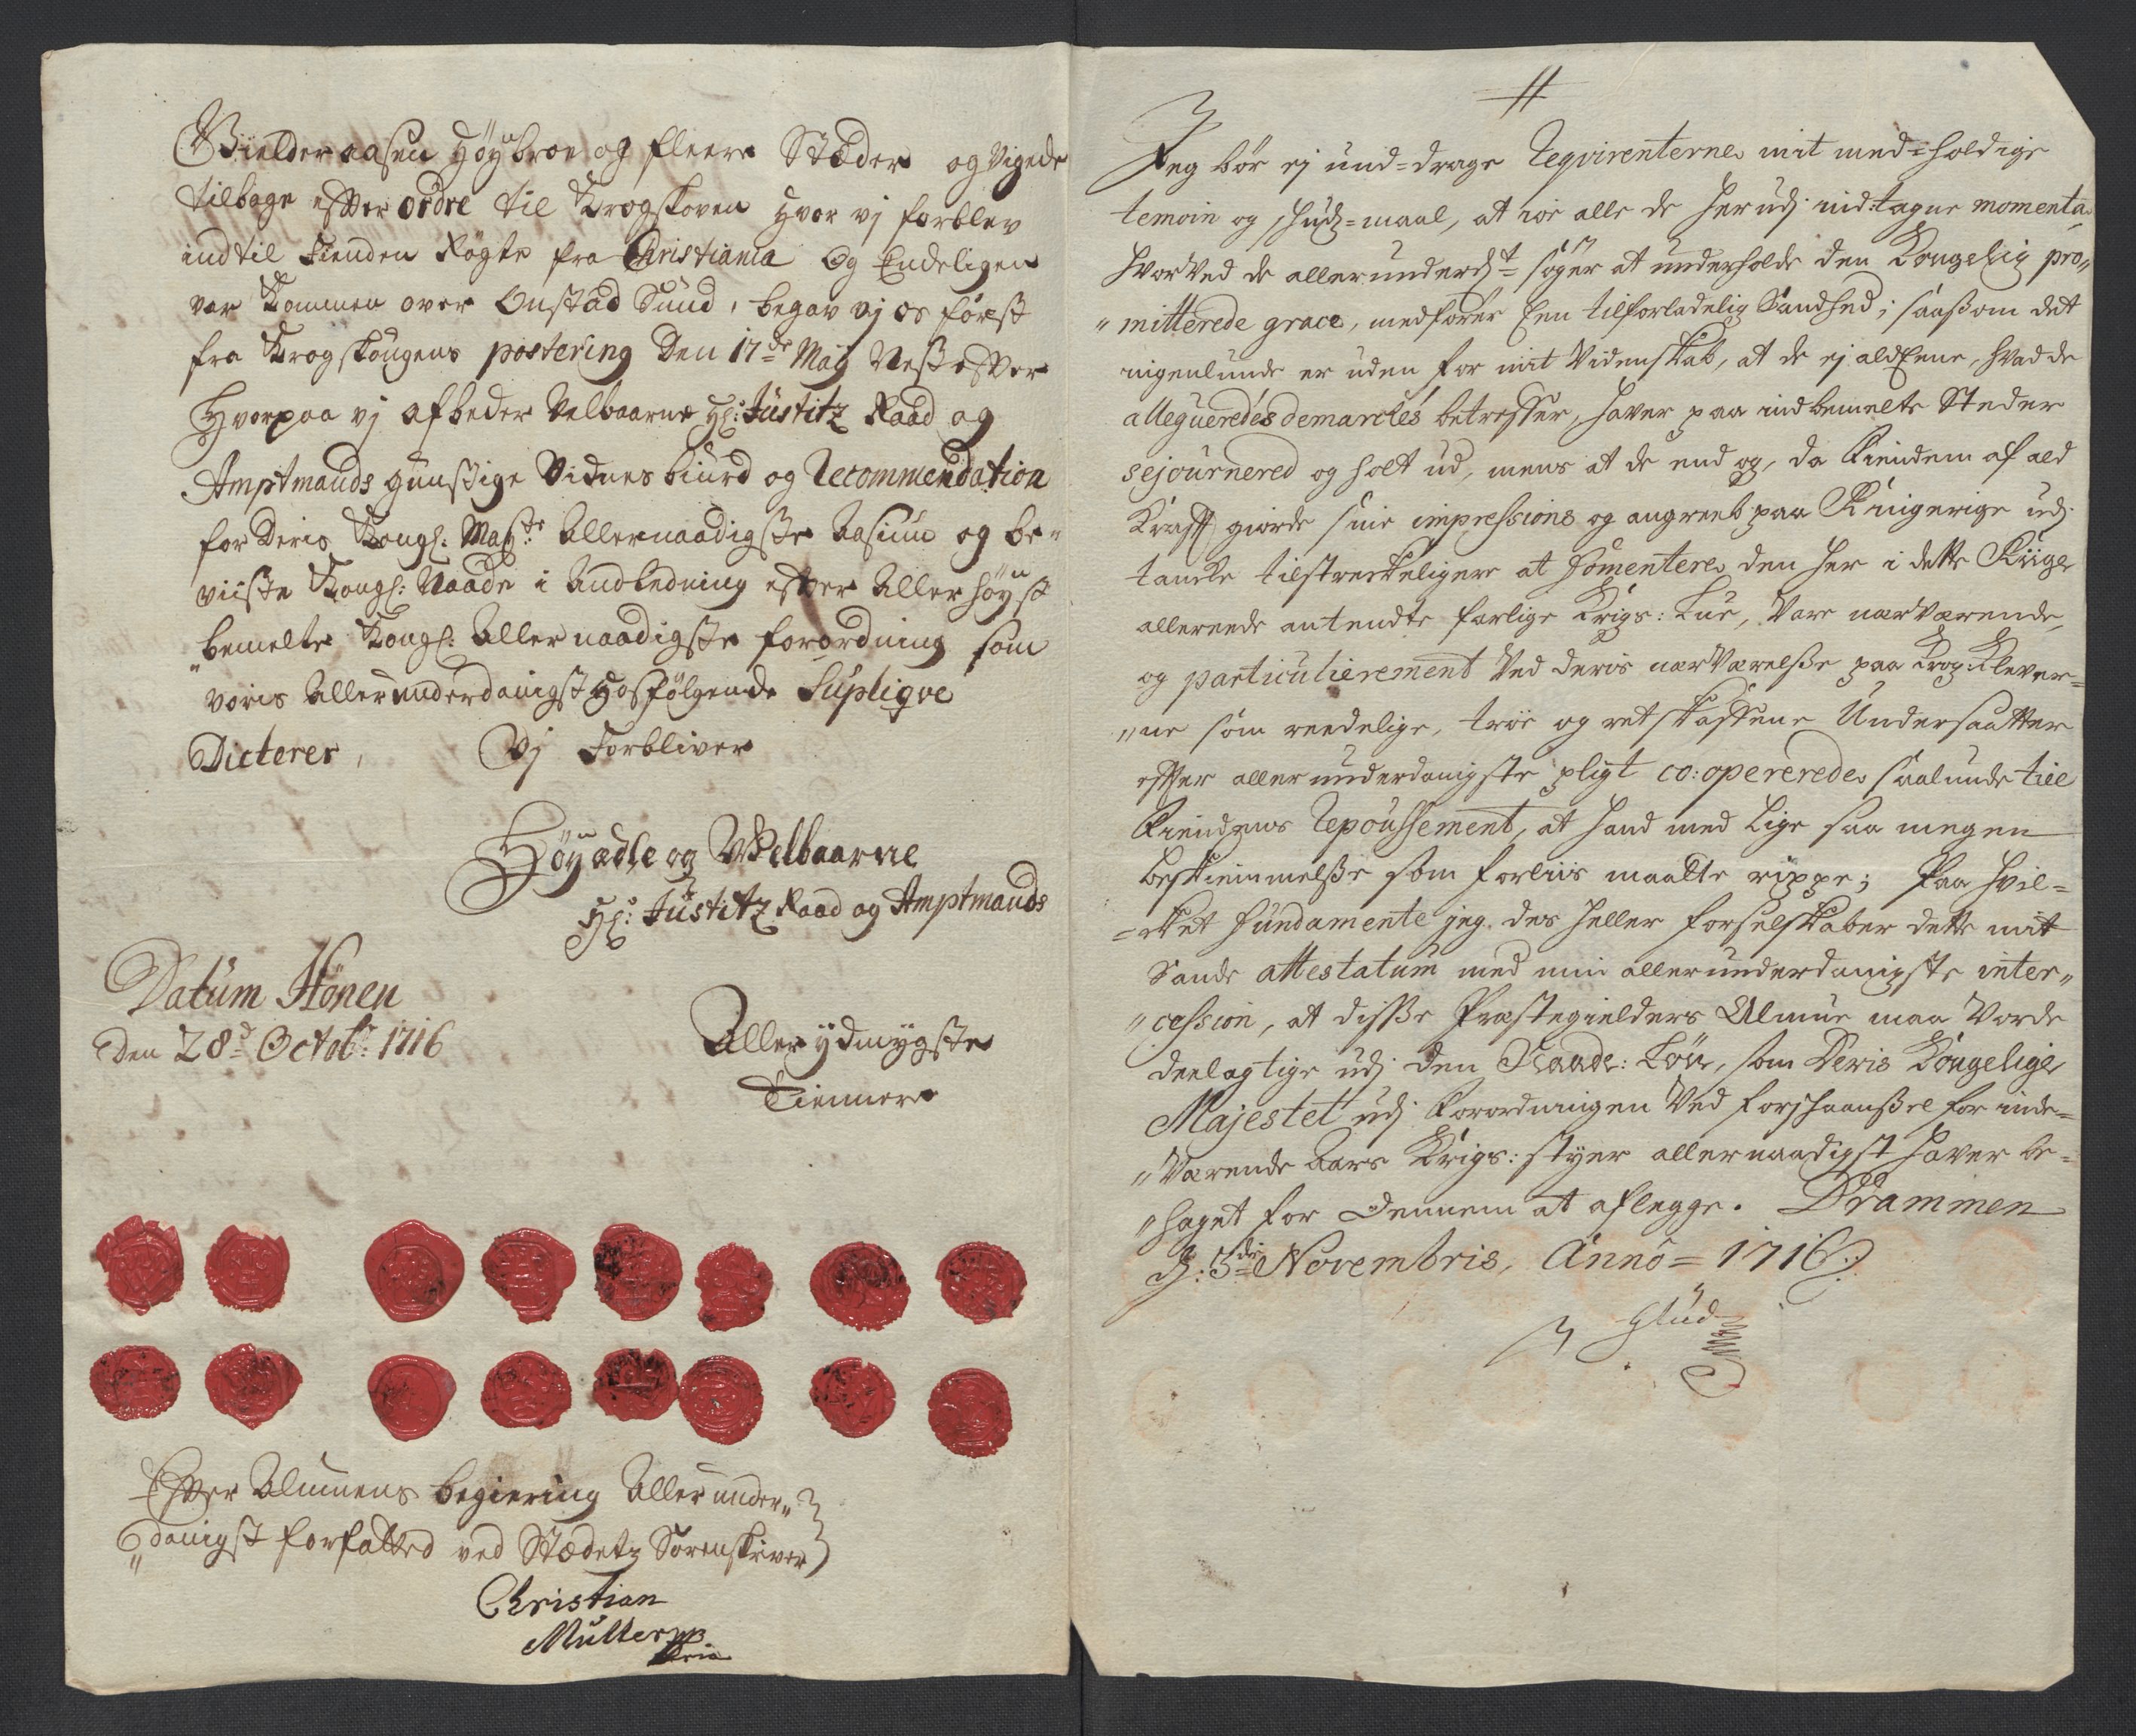 Gielderaasen Höybroe og fleere Stæder og vigede
tilbage effter ordre til Krogskoven hvor vj forblev
indtil Fienden Røgte fra Christiania Og Endeligen
var kommen over Onstad Sund, begav vj os först
fra Krogskougens postering den 17de Maÿ Nest effter
Hvorpaa vj afbeder Velbaarne Hr: Justitz Raad og
Amptmands gunstige Vidnesbiurd og Recommendation
for Deris Kongl: Maÿts: Allernaadigste Aasiun og be-
viiste Kongl: Naade i Andledning effter Aller höyst
bemelte Kongl: Aller naadigste forordning som
voris Allerunderdanigst Hosfölgende Supliqve
Dicterer, Vj Forbliver
Höyædle og Welbaarne
Hr: Justitz Raad og Amptmands
Datum Hönen
den 28d Octobr: 1716
Aller ÿdmygste
Tiennere
Effter Almuens begiering Allerunder„
„danigst forfatted ved Stædetz Sorenskriver
Christian
Muller mp
pria
Jeg bör ej und-drage Reqvirenterne mit med-holdige
temoin og skudz-maal, at io alle de herudj indtagne momenta
hvorVed de allerunderdt söger at underholde den Kongelig pro„
„mitterede grace, medförer Een tilforladelig Sandhed; saasom det
ingenlunde er uden for mit Videnskab, at de ej aldeene, hvad de
allegueredes demarches betreffer, haver paa indbemelte Steder
sejournered og holt ud, mens at de end og, da Fienden af ald
Krafft giorde sine impressions og angreeb paa Ringerige udj
tancke tilstreckeligere at fomentere den her i dette Riige
allereede antendte farlige Krigs: Lue, Vare nærVærende,
og particulierement Ved deris nærVærelsse paa Krog Klever-
„ne som reedelige, troe og retskaffene Undersaatter
effter allerunderdanigste pligt co:opererede saalunde till
Fiendens Repoussement, at hand med lige saa megen
beskiemmelsse som forliis maatte rippe; Paa hvil-
-cket fundamente jeg des heller forselskaber dette mit
Sande attestatum med min allerunderdanigste inter„
„cession, at disse Præstegielders Almue maa Vorde
deelagtige udj den Naade: Lön, som Deris Kongelige
Majestet udj Forordningen Ved forskaanssel for inde-
„Værende Aars Krigs: styer allernaadigst haver be-
„haget for dennem at aflegge. Drammen
d: 5de Novembris, Anno= 1716:/
J Glud